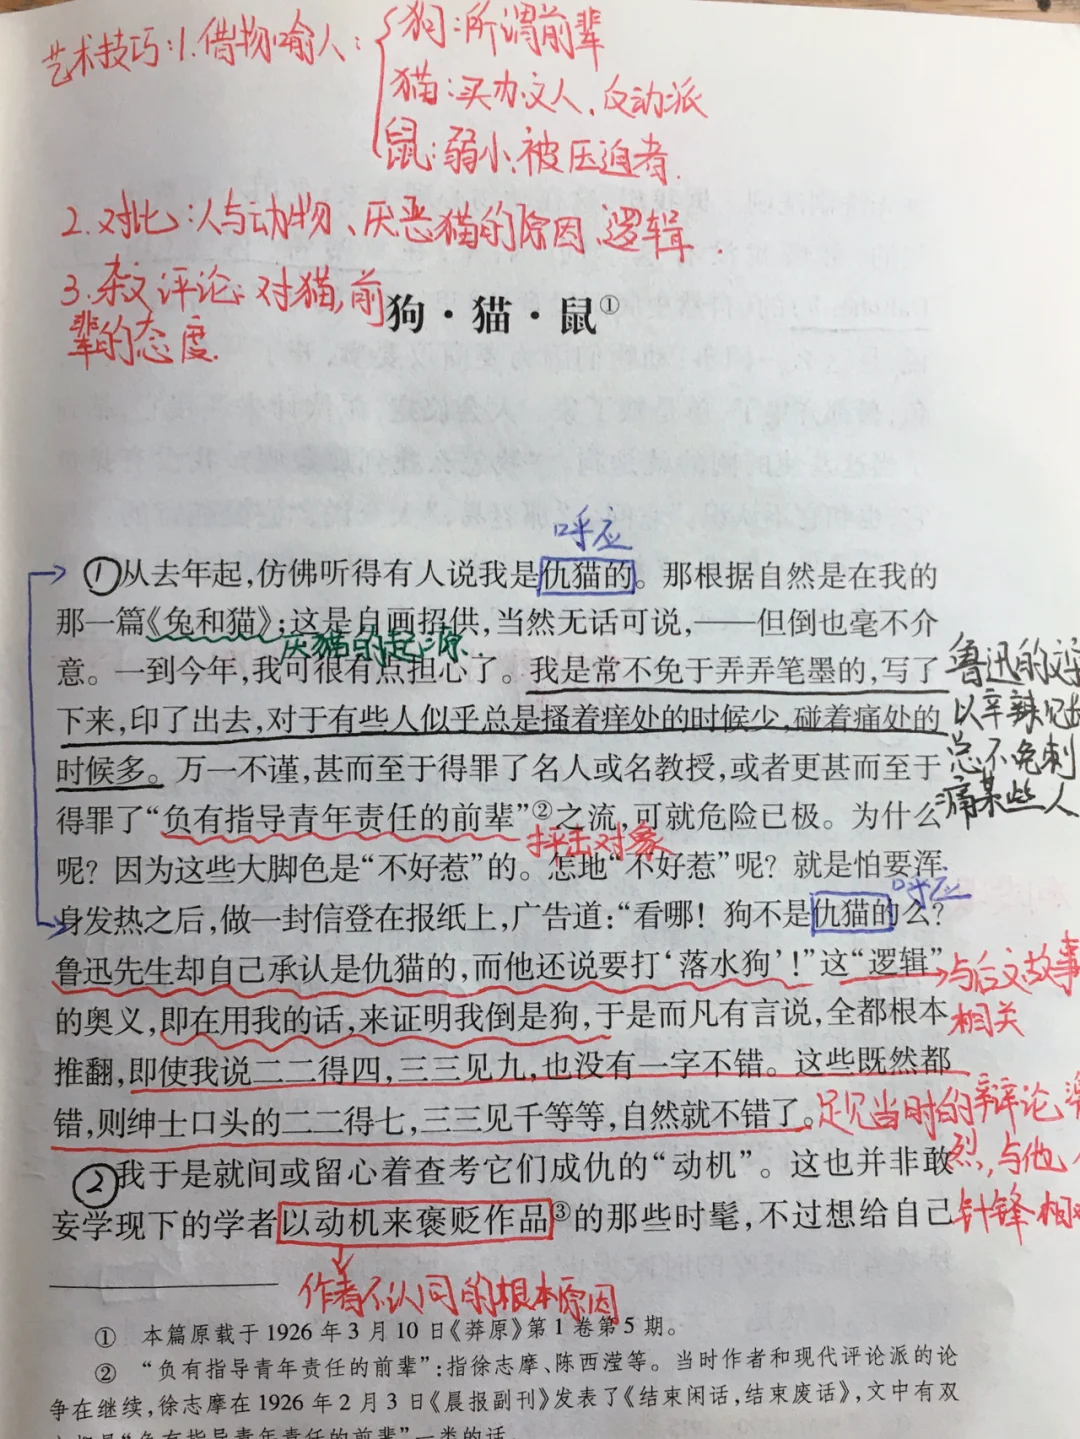 艺术技巧:1.借物喻人:
狗:所谓前辈
猫:买办文人、反动派
鼠:弱小、被压迫者.
2.对比:人与动物、厌恶猫的原因、逻辑.
3.杂文评论:对猫,前
辈的态度.
狗·猫·鼠①
呼应
①从去年起,仿佛听得有人说我是仇猫的。那根据自然是在我的
那一篇《兔和猫》;这是自画招供,当然无话可说,——但倒也毫不介
厌猫的起源
意。一到今年,我可很有点担心了。我是常不免于弄弄笔墨的,写了
下来,印了出去,对于有些人似乎总是搔着痒处的时候少,碰着痛处的
时候多。万一不谨,甚而至于得罪了名人或名教授,或者更甚而至于
鲁迅的文
以辛辣
总不免刺
痛某些人
得罪了“负有指导青年责任的前辈”②之流,可就危险已极。为什么
抨击对象
呢?因为这些大脚色是“不好惹”的。怎地“不好惹”呢?就是怕要浑
呼应
身发热之后,做一封信登在报纸上,广告道:“看哪!狗不是仇猫的么?
鲁迅先生却自己承认是仇猫的,而他还说要打‘落水狗’!”这“逻辑”
与后文故事
相关
的奥义,即在用我的话,来证明我倒是狗,于是而凡有言说,全都根本
推翻,即使我说二二得四,三三见九,也没有一字不错。这些既然都
错,则绅士口头的二二得七,三三见千等等,自然就不错了。
足见当时的辩论
烈,与他
针锋相
②我于是就间或留心着查考它们成仇的“动机”。这也并非敢
妄学现下的学者以动机来褒贬作品③的那些时髦,不过想给自己
作者不认同的根本原因
① 本篇原载于1926年3月10日《莽原》第1卷第5期。
② “负有指导青年责任的前辈”:指徐志摩、陈西滢等。当时作者和现代评论派的论
争在继续,徐志摩在1926年2月3日《晨报副刊》发表了《结束闲话,结束废话》,文中有双
“负有指导青年责任的前辈”一类的话。